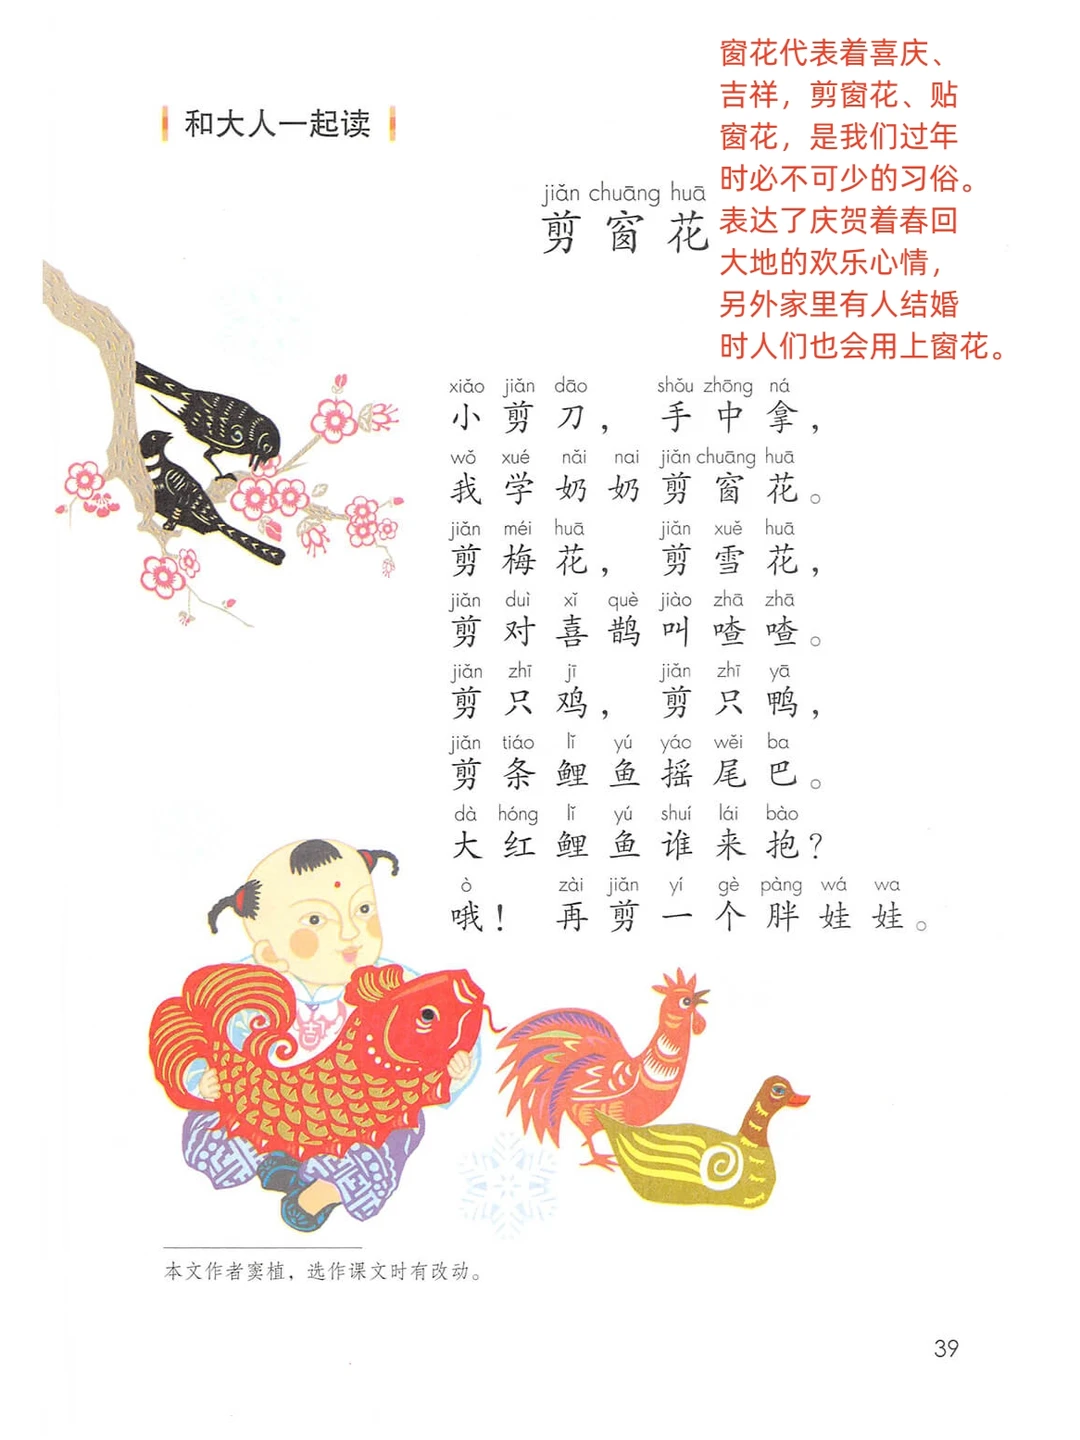 和大人一起读
窗花代表着喜庆、
吉祥，剪窗花、贴
窗花，是我们过年
时必不可少的习俗。
表达了庆贺着春回
大地的欢乐心情，
另外家里有人结婚
时人们也会用上窗花。
jiǎn chuāng huā
剪窗花
xiǎo jiǎn dāo shǒu zhōng ná
小剪刀，手中拿，
wǒ xué nǎi nai jiǎn chuāng huā
我学奶奶剪窗花。
jiǎn méi huā jiǎn xuě huā
剪梅花，剪雪花，
jiǎn duì xǐ què jiào zhā zhā
剪对喜鹊叫喳喳。
jiǎn zhī jī jiǎn zhī yā
剪只鸡，剪只鸭，
jiǎn tiáo lǐ yú yáo wěi ba
剪条鲤鱼摇尾巴。
dà hóng lǐ yú shuí lái bào
大红鲤鱼谁来抱？
ò zài jiǎn yí gè pàng wá wa
哦！再剪一个胖娃娃。
吉
本文作者窦植，选作课文时有改动。
39